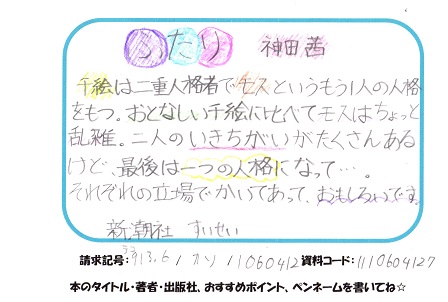 ふたり 神田茜
千絵は二重人格者でモスというもう1人の人格
をもつ。おとなしい千絵に比べてモスはちょっと
乱雑。二人のいきちがいがたくさんある
けど、最後は一つの人格になって…。
それぞれの立場でかいてあって、おもしろいです。
新潮社 すいせい
請求記号: 913.6 / カン / 11060412 資料コード: 1110604127
本のタイトル・著者・出版社、おすすめポイント、ペンネームを書いてね☆